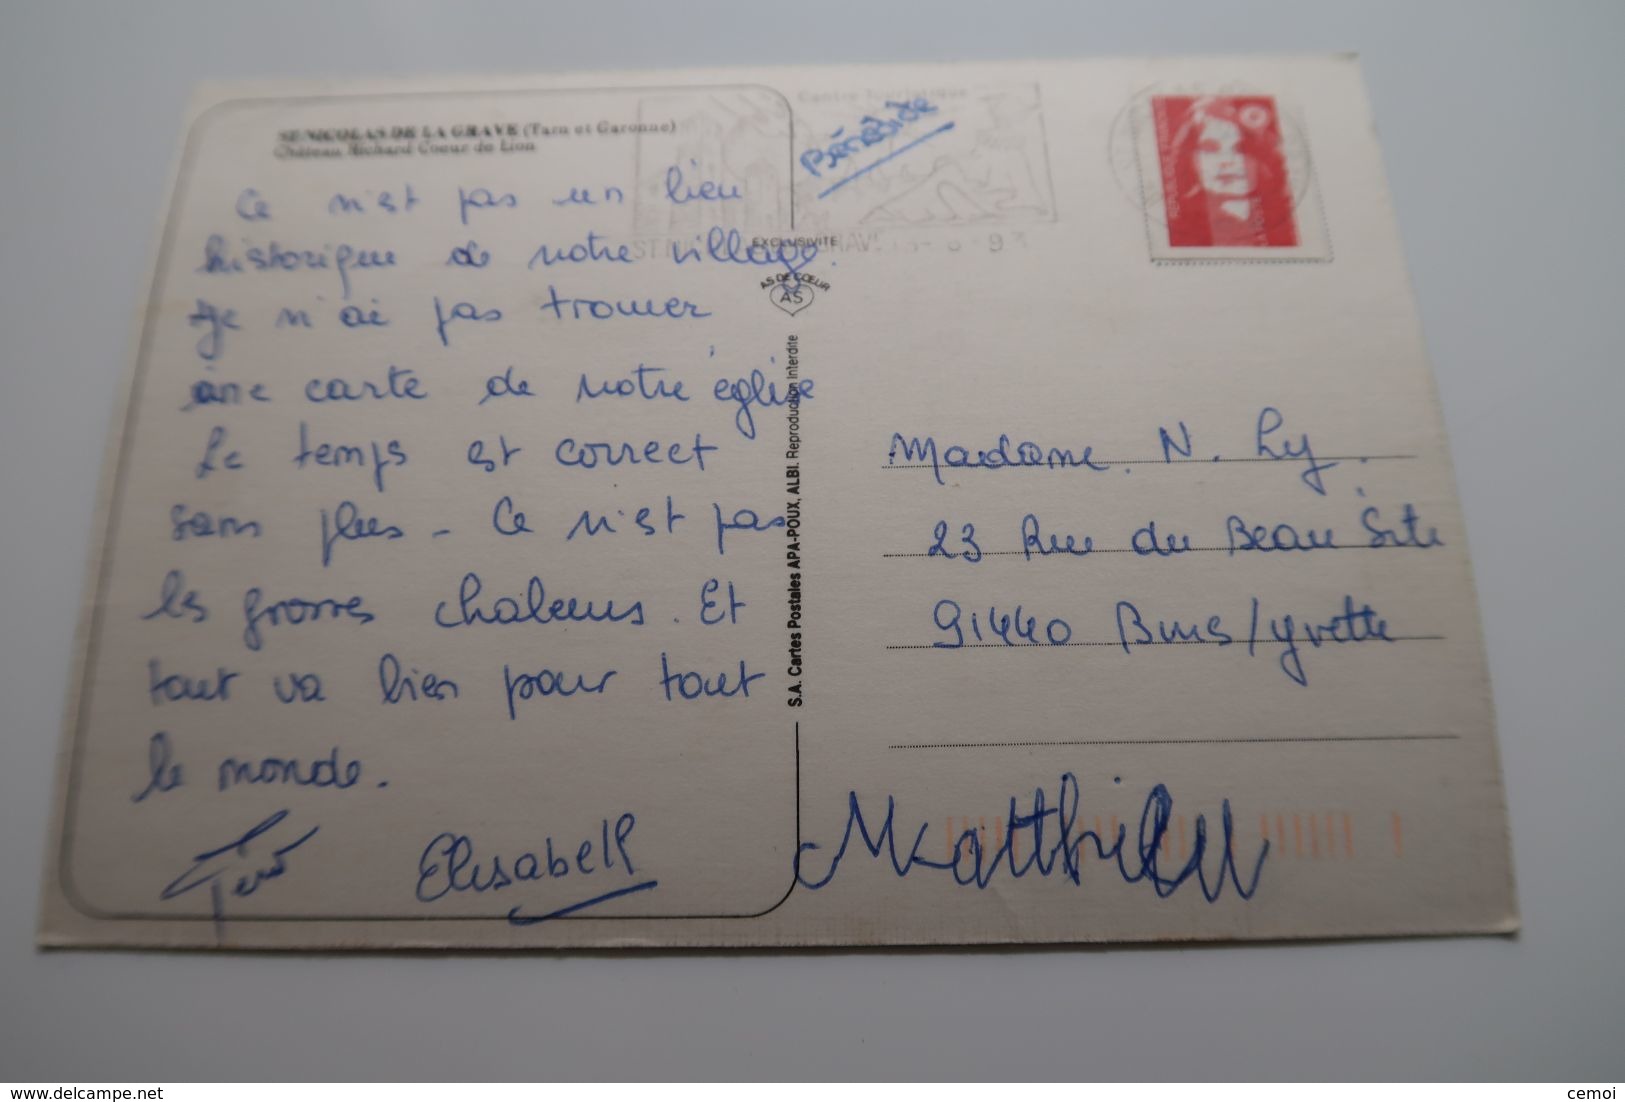 ST NICOLAS DE LA GRAVE (Tarn et Garonne)
Château Richard Coeur de Lion
Centre Touristique
Bénédicte
Ce n'est pas un lieu
historique de notre village.
Je n'ai pas trouver
une carte de notre église
Le temps est correct
sans plus - Ce n'est pas
les grosses chaleurs. Et
tout va bien pour tout
le monde.
Elisabeth
EXCLUSIVITE
AS DE COEUR
AS
S.A. Cartes Postales APA-POUX, ALBI. Reproduction Interdite
REPUBLIQUE FRANÇAISE
LA POSTE
Madame N. Ly.
23 Rue du Beau Site
91440 Bures/Yvette
Matthieu
delcampe.net
cemoi